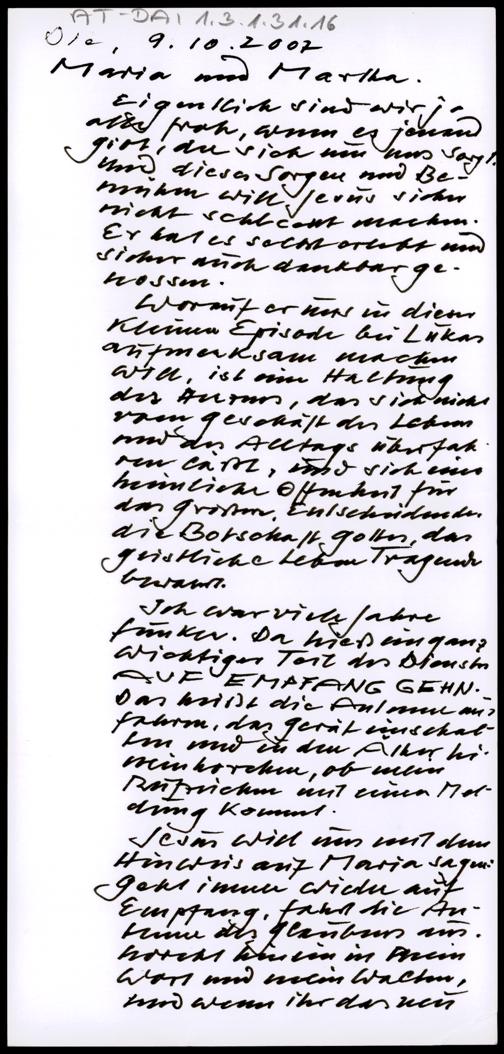 AT-DAI 1.3.1.31.16
Die, 9.10.2002
Maria und Martha.
Eigentlich sind wir ja
alle froh, wenn es jemand
gibt, der sich um uns sorgt.
Und diese Sorgen und Be-
mühen will Jesus sicher
nicht schlecht machen.
Er hat es selbst erlebt und
sicher auch dankbar ge-
nossen.
Worauf er uns in dieser
kleinen Episode bei Lukas
aufmerksam machen
will, ist eine Haltung
des Herzens, das sich nicht
vom Geschäft des Lebens
und des Alltags überfah-
ren lässt, und sich eine
heimliche Offenheit für
das Grössere, Entscheidende,
die Botschaft Gottes, das
geistliche Leben Tragende
bewahrt.
Ich war viele Jahre
Funker. Da hiess ein ganz
wichtiger Teil des Dienstes
AUF EMPFANG GEHN.
Das heisst die Antenne aus-
fahren, das Gerät einschal-
ten und in den Äther hi-
neinhorchen, ob mein
Rufzeichen mit einer Mel-
dung kommt.
Jesus will uns mit dem
Hinweis auf Maria sagen:
Geht immer wieder auf
Empfang, fahrt die An-
tenne des Glaubens aus.
Horcht hinein in mein
Wort und mein Walten,
und wenn ihr das neu